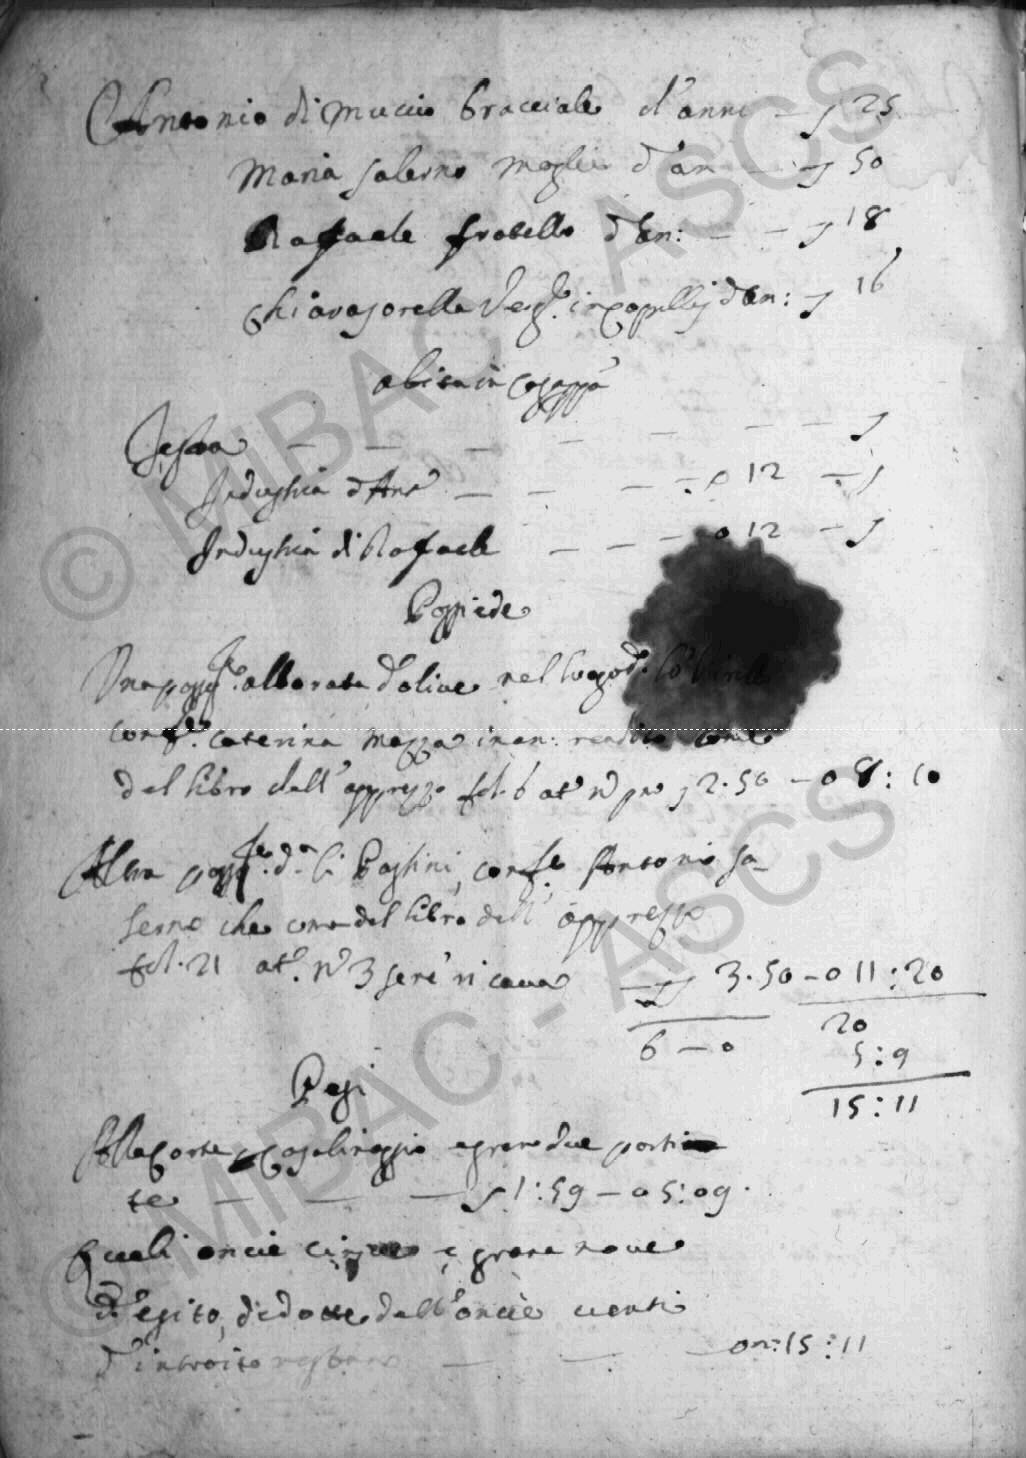 Antonio di Muccio bracciale d'anni — 25
Maria Salerno moglie d'an — 50
Rafaele fratello d'an: — — 18
Chiara sorella Verg.e in capillis d'an: 16
abita in casa ppa
Testa — — — — — — —
Industria d'Ant.o — — — — : o 12 —
Industria di Rafaele — — — o 12 —
Possiede
Una poss.e alborata d'olive nel luogo d.o lo
conf.e Caterina Mazza in an: rendita come
del libro dell'apprezzo fol. 6 at.o n.o p.mo 2.50 — o 8: 10
Altra poss.e d.a li Pastini, conf.e Antonio Sa-
lerno che come del libro dell'apprezzo
fol. 21 at.o n.o 3 se ne ricava — 3.50 — o 11:20
6 — o 20
5:9
15:11
Pesi
Alla Corte p casalinaggio e grano due partite
te — — — 1:59 — o 5:09.
Quali oncie cinque e grana nove
d'esito, dedotte dall'oncie venti
d'introito restano — — — on: 15:11
© MiBAC - ASCS
© MiBAC - ASCS